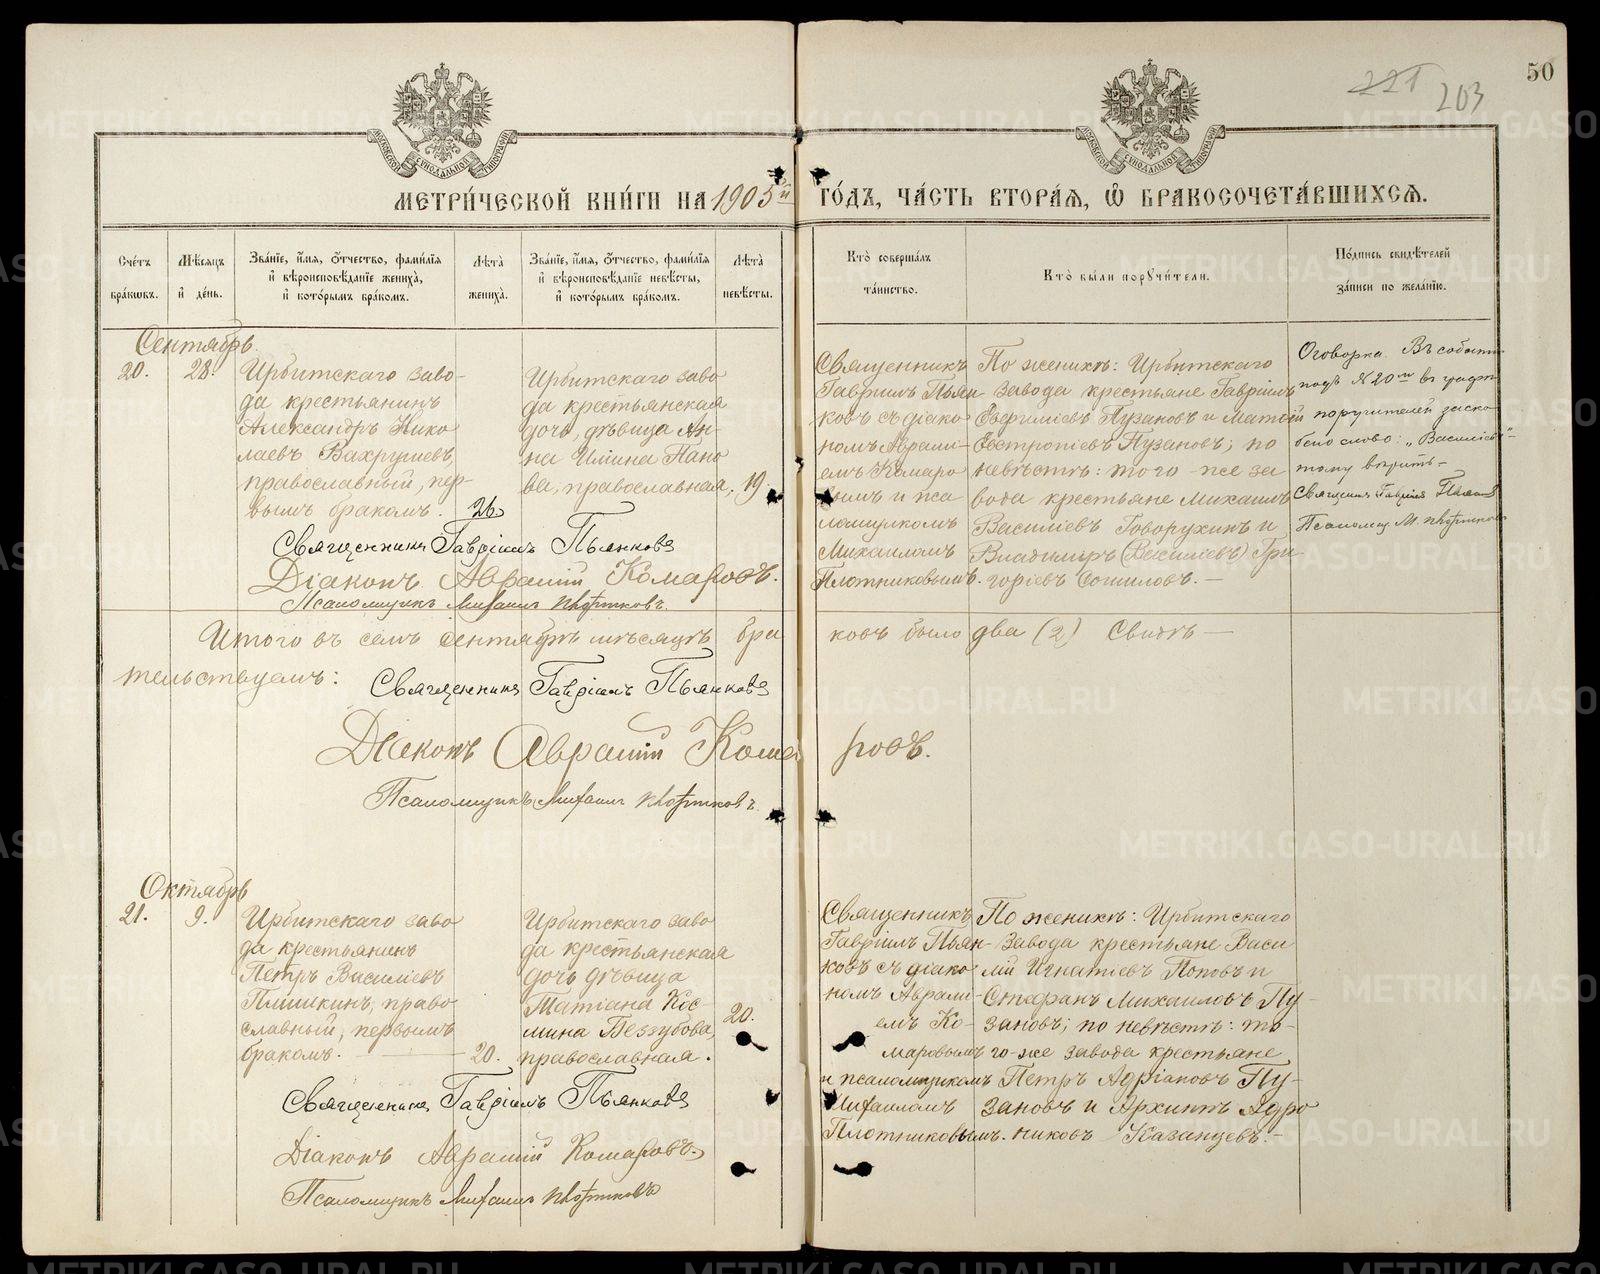 50
221
203
МОСКОВСКОЙ СѴНОДАЛЬНОЙ ТИПОГРАФІИ
МОСКОВСКОЙ СѴНОДАЛЬНОЙ ТИПОГРАФІИ
МЕТРИ́ЧЕСКОЙ КНИ́ГИ НА 1905й ГО́ДЪ, ЧА́СТЬ ВТОРА́Ѧ, Ѽ БРАКОСОЧЕТА́ВШИХСѦ.
Сче́тъ бра́кѡвъ.
Мѣ́сѧцъ и҆ де́нь.
Зва́нїе, и҆́мѧ, ѻ҆́тчество, фамѝлїѧ и҆ вѣроисповѣ́данїе жениха̀, и҆ кото́рымъ бра́комъ.
Лѣ́та жениха̀.
Зва́нїе, и҆́мѧ, ѻ҆́тчество, фамѝлїѧ и҆ вѣроисповѣ́данїе невѣ́сты, и҆ кото́рымъ бра́комъ.
Лѣ́та невѣ́сты.
Кто̀ соверша́лъ та́инство.
Кто̀ бы́ли порꙋчи́тели.
По́дпись свидѣ́телей за́писи по жела́нїю.
Сентябрь
20.
28.
Ирбитскаго заво-
да крестьянинъ
Александръ Нико
лаевъ Вахрушевъ,
православный, пер-
вымъ бракомъ.
26
Ирбитскаго заво
да крестьянская
дочь, дѣвица Ан-
на Ильина Пано
ва, православная.
19.
Священникъ
Гавріилъ Пьян
ковъ съ діако
номъ Аврами-
емъ Комаро
вымъ и пса
ломщикомъ
Михаиломъ
Плотниковымъ.
По женихѣ: Ирбитскаго
Завода крестьяне Гавріилъ
Евфиміевъ Пузановъ и Матѳей
Евстропіевъ Пузановъ; по
невѣстѣ: того-же за
вода крестьяне Михаилъ
Василіевъ Говорухинъ и
Владиміръ (Василіевъ) Гри
горіевъ Сошиловъ. —
Оговорка. Въ событіи
подъ № 20мъ въ графѣ
поручителей заско
бено слово: „Василіевъ"
тому вѣрить —
Священникъ Гавріилъ Пьянковъ
Псаломщ. М. Плотниковъ
Священникъ Гавріилъ Пьянковъ
Діаконъ Аврамій Комаровъ.
Псаломщикъ Михаилъ Плотниковъ.
Итого въ семъ сентябрѣ мѣсяцѣ бра ковъ было два (2) Свидѣ —
тельствуемъ: Священникъ Гавріилъ Пьянковъ
Діаконъ Аврамій Кома ровъ.
Псаломщикъ Михаилъ Плотниковъ.
Октябрь
21.
9.
Ирбитскаго заво
да крестьянинъ
Петръ Василіевъ
Плишкинъ, право
славный, первымъ
бракомъ. —
20.
Ирбитскаго заво
да крестьянская
дочь дѣвица
Татіана Кос-
мина Беззубова,
православная.
20.
Священникъ
Гавріилъ Пьян-
ковъ съ діако
номъ Аврами-
емъ Ко-
маровымъ
и псаломщикомъ
Михаиломъ
Плотниковымъ.
По женихѣ: Ирбитскаго
Завода крестьяне Васи
лій Игнатіевъ Поповъ и
Стефанъ Михаиловъ Пу-
зановъ; по невѣстѣ: то-
го-же завода крестьяне
Петръ Адріановъ Пу-
зановъ и Архиппъ Адро
никовъ Казанцевъ. —
Священникъ Гавріилъ Пьянковъ
Діаконъ Аврамій Комаровъ.
Псаломщикъ Михаилъ Плотниковъ
METRIKI.GASO-URAL.RU